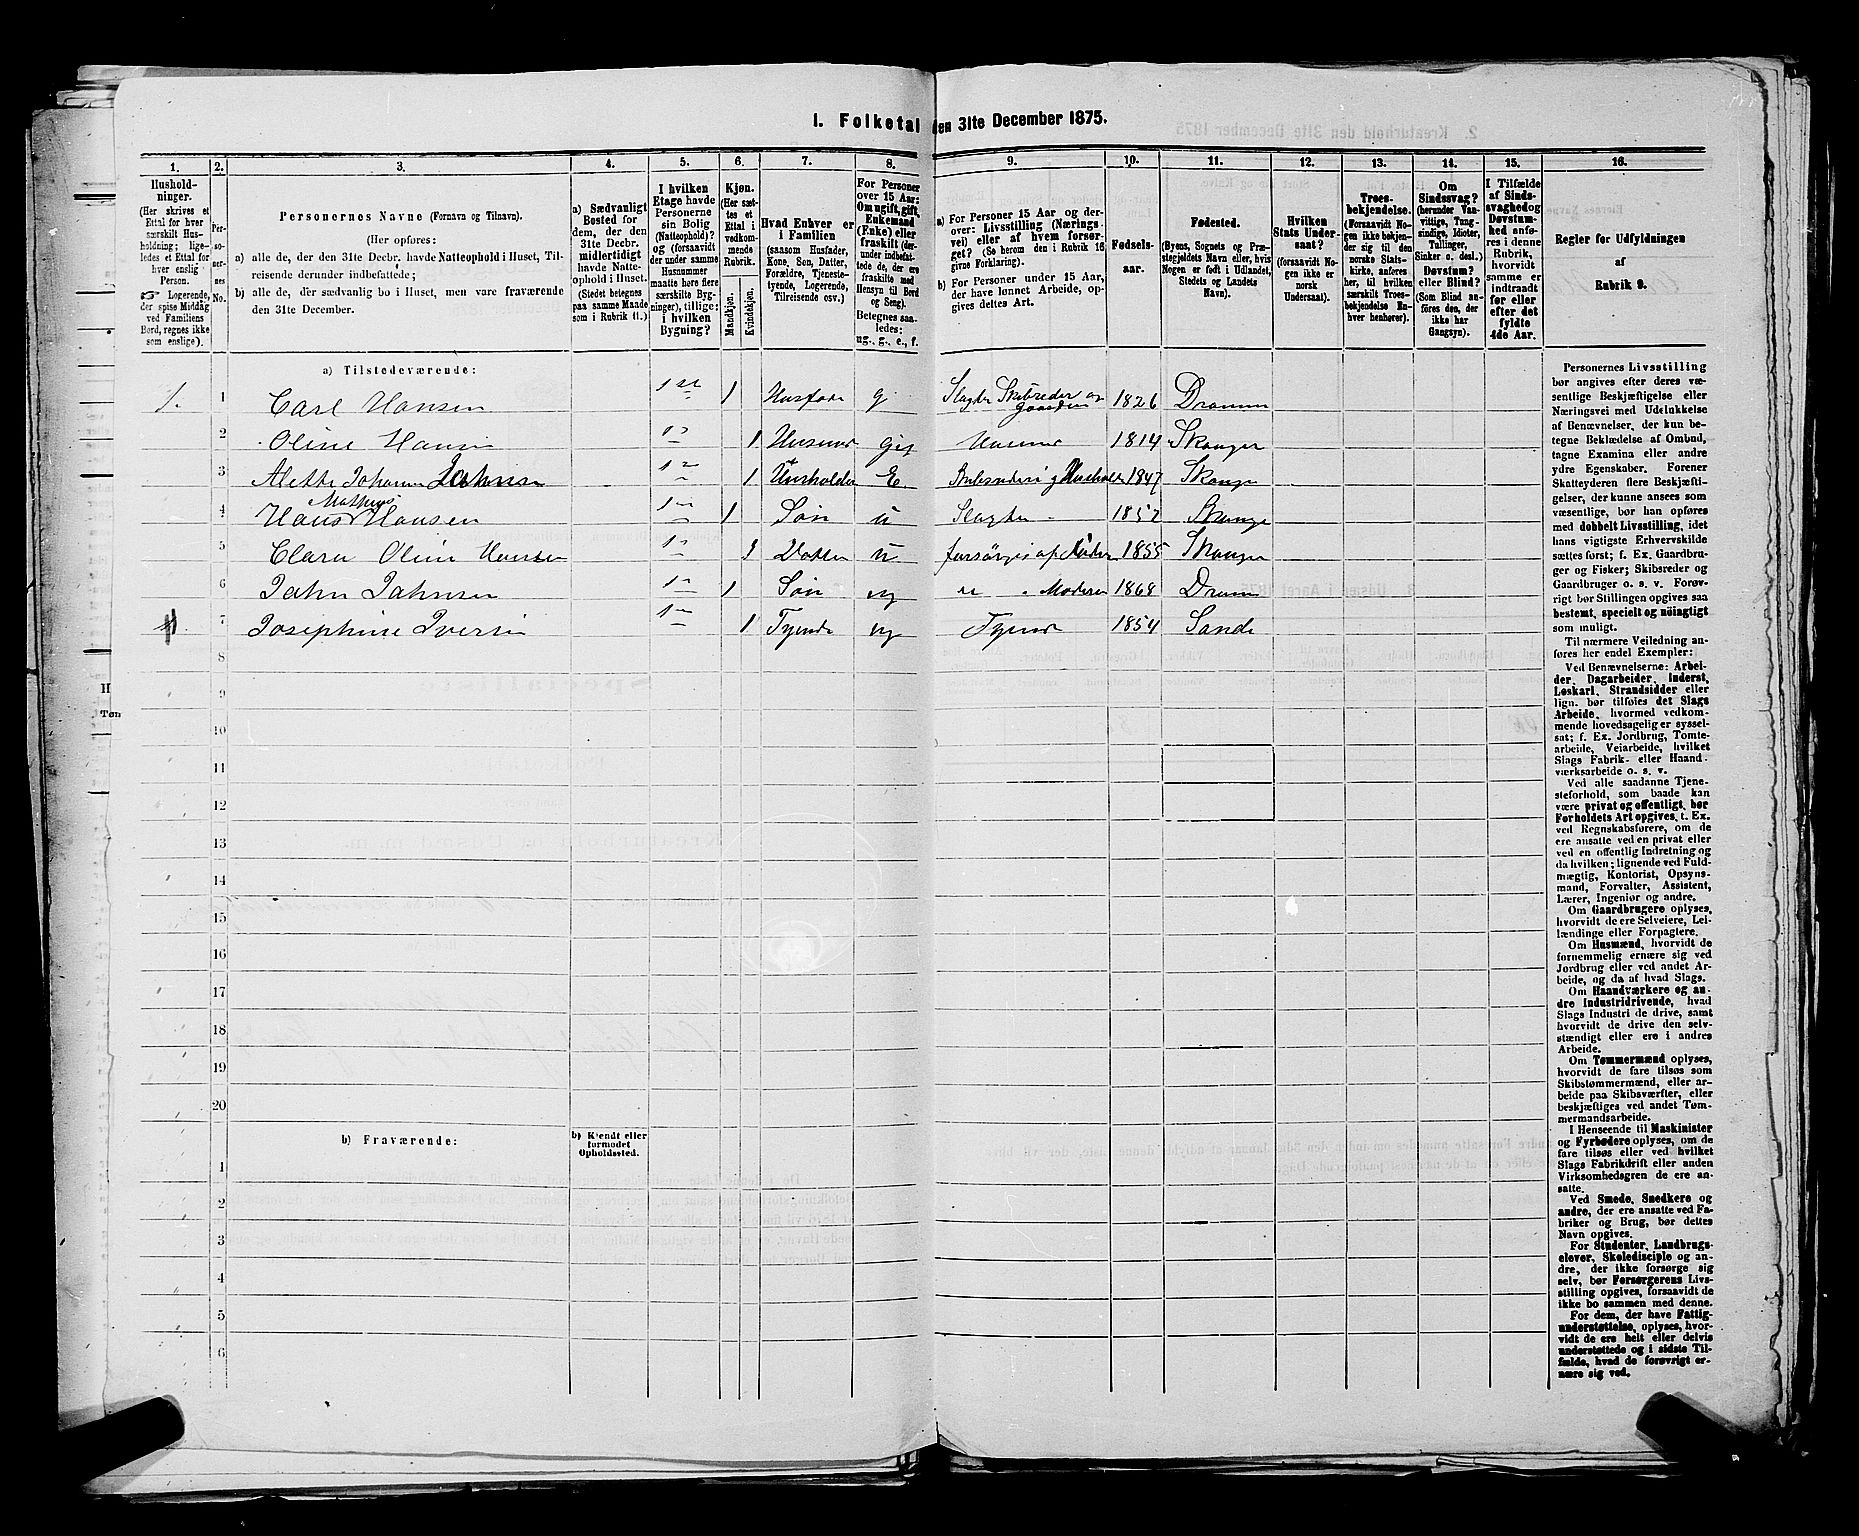 1. Folketal den 31te December 1875.
1. 2. 3. 4. 5. 6. 7. 8. 9. 10. 11. 12. 13. 14. 15. 16.
Hushold-
ninger.
(Her skrives et
Ettal for hver
særskilt Hus-
holdning; lige-
ledes et Ettal for
hver enslig
Person.
Logerende,
der spise Middag
ved Familiens
Bord, regnes ikke
som enslige).
Per-
so-
ner-
nes
No.
Personernes Navne (Fornavn og Tilnavn).
(Her opføres:
a) alle de, der den 31te Decbr. havde Natteophold i Huset, Til-
reisende derunder indbefattede;
b) alle de, der sædvanlig bo i Huset, men vare fraværende
den 31te December.
a) Sædvanligt
Bosted for
dem, der den
31te Decbr.
midlertidigt
havde Natte-
ophold i Huset.
(Stedet betegnes
paa samme Maade
som i Rubrik 11.)
I hvilken
Etage havde
Personerne
sin Bolig
(Natteophold)?
og (forsaavidt
der under samme
Husnummer
maatte høre flere
særskilte Byg-
ninger), tillige:
i hvilken
Bygning?
Kjøn.
(Her sæt-
tes et
Ettal i
vedkom-
mende
Rubrik.
Mandkjøn.
Kvindekjøn.
Hvad Enhver er
i Familien
(saasom Husfader,
Kone, Søn, Datter,
Forældre, Tjeneste-
tyende, Logerende,
Tilreisende osv.)
For Personer
over 15 Aar:
Om ugift, gift,
Enkemand
(Enke) eller
fraskilt (der-
under indbefat-
tede de, der ere
fraskilte med
Hensyn til Bord
og Seng).
Betegnes saa-
ledes:
ug., g., e., f.
a) For Personer 15 Aar og der-
over: Livsstilling (Nærings-
vei) eller af hvem forsør-
get? (Se herom den i Rubrik 16
givne Forklaring).
b) For Personer under 15 Aar,
der have lønnet Arbeide, op-
gives dettes Art.
Fødsels-
aar.
Fødested.
(Byens, Sognets og Præ-
stegjeldets Navn eller, hvis
Nogen er født i Udlandet,
Stedets og Landets
Navn).
Hvilken
Stats Under-
saat?
(forsaavidt No-
gen ikke er
norsk
Undersaat).
Troes-
bekjendelse.
(Forsaavidt No-
gen ikke bekjen-
der sig til den
norske Stats-
kirke, anføres
her, til hvilken
særskilt Troes-
bekjendelse En-
hver henhører).
Om
Sindssvag?
(herunder Van-
vittige, Tung-
sindige, Idioter,
Tullinger,
Sinker o. desl.)
Døvstum?
eller Blind?
(Som Blind an-
føres den, der
ikke har
Gangsyn).
I Tilfælde
af Sinds-
svaghed og
Døvstum-
hed anfø-
res i denne
Rubrik,
hvorvidt
samme er
indtraadt
før eller
efter det
fyldte
4de Aar.
Regler for Udfyldningen
af
Rubrik 9.
a) Tilstedeværende:
1. 1 Carl Hansen 1 1 Husfade g Slagter Skibsreder og Gaardeier 1826 Dramm
2 Oline Hansen 1 1 gif 1814 Skoger
3 Alette Johanne Jahnsen 1 1 Husholder E 1847 Skoger
4 Hans Mathias Hansen 1 1 Søn u Slagter 1852 Skoger
5 Clara Oline Hansen 1 1 Datter u forsørges af Fader 1855 Skoger
6 Jahn Jahnsen 1 1 Søn ug Moderen 1868 Dramm
7 Josephine Iversen 1 1 Tyende ug Tyende 1854 Sande
8
9
10
11
12
13
14
15
16
17
18
19
20
b) Fraværende:
b) Kjendt eller
formodet
Opholdssted.
1
2
3
4
5
6
Personernes Livsstilling
bør angives efter deres væ-
sentlige Beskjæftigelse eller
Næringsvei med Udelukkelse
af Benævnelser, der kun be-
tegne Beklædelse af Ombud,
tagne Examina eller andre
ydre Egenskaber. Forener
Skatteyderen flere Beskjæfti-
gelser, der kunne ansees som
væsentlige, bør han opføres
med dobbelt Livsstilling, idet
hans vigtigste Erhvervskilde
sættes først; f. Ex. Gaardbru-
ger og Fisker; Skibsreder og
Gaardbruger o. s. v. Forøv-
rigt bør Stillingen opgives saa
bestemt, specielt og nöiagtigt
som muligt.
Til nærmere Veiledning an-
føres her endel Exempler:
Ved Benævnelserne: Arbei-
der, Dagarbeider, Inderst,
Løskarl, Strandsidder eller
lign. bør tilføies det Slags
Arbeide, hvormed vedkom-
mende hovedsagelig er syssel-
sat; f. Ex. Jordbrug, Tomte-
arbeide, Veiarbeide, hvilket
Slags Fabrik- eller Haand-
værksarbeide o. s. v.
Ved alle saadanne Tjene-
steforhold, som baade kan
være privat og offentligt, bør
Forholdets Art opgives, t. Ex.
ved Regnskabsførere, om de
ere ansatte ved en privat eller
ved en offentlig Indretning og
da hvilken; lignende ved Fuld-
mægtig, Kontorist, Opsyns-
mand, Forvalter, Assistent,
Lærer, Ingeniør og andre.
Om Gaardbrugere oplyses,
hvorvidt de ere Selveiere, Lei-
lændinge eller Forpagtere.
Om Husmænd, hvorvidt de
fornemmelig ernære sig ved
Jordbrug eller ved andet Ar-
beide, og da af hvad Slags.
Om Haandværkere og an-
dre Industridrivende, hvad
Slags Industri de drive, samt
hvorvidt de drive den selv-
stændigt eller ere i andres
Arbeide.
Om Tømmermænd oplyses,
hvorvidt de fare tilsøs som
Skibstømmermænd, eller ar-
beide paa Skibsværfter, eller
beskjæftiges ved andet Tøm-
mermandsarbeide.
I Henseende til Maskinister
og Fyrbødere oplyses, om de
fare tilsøs eller ved hvilket
Slags Fabrikdrift eller anden
Virksomhedsgren de ere an-
satte.
Ved Smede, Snedkere og
andre, der ere ansatte ved Fa-
briker og Brug, bør dettes
Navn opgives.
For Studenter, Landbrugs-
elever, Skoledisciple og an-
dre, der ikke forsørge sig
selv, bør Forsørgerens Livs-
stilling opgives, forsaavidt de
ikke bo sammen med denne.
For dem, der have Fattig-
understøttelse, oplyses, hvor-
vidt de ere helt eller delvis
understøttede og i sidste Til-
fælde, hvad de forøvrigt er-
nære sig ved.